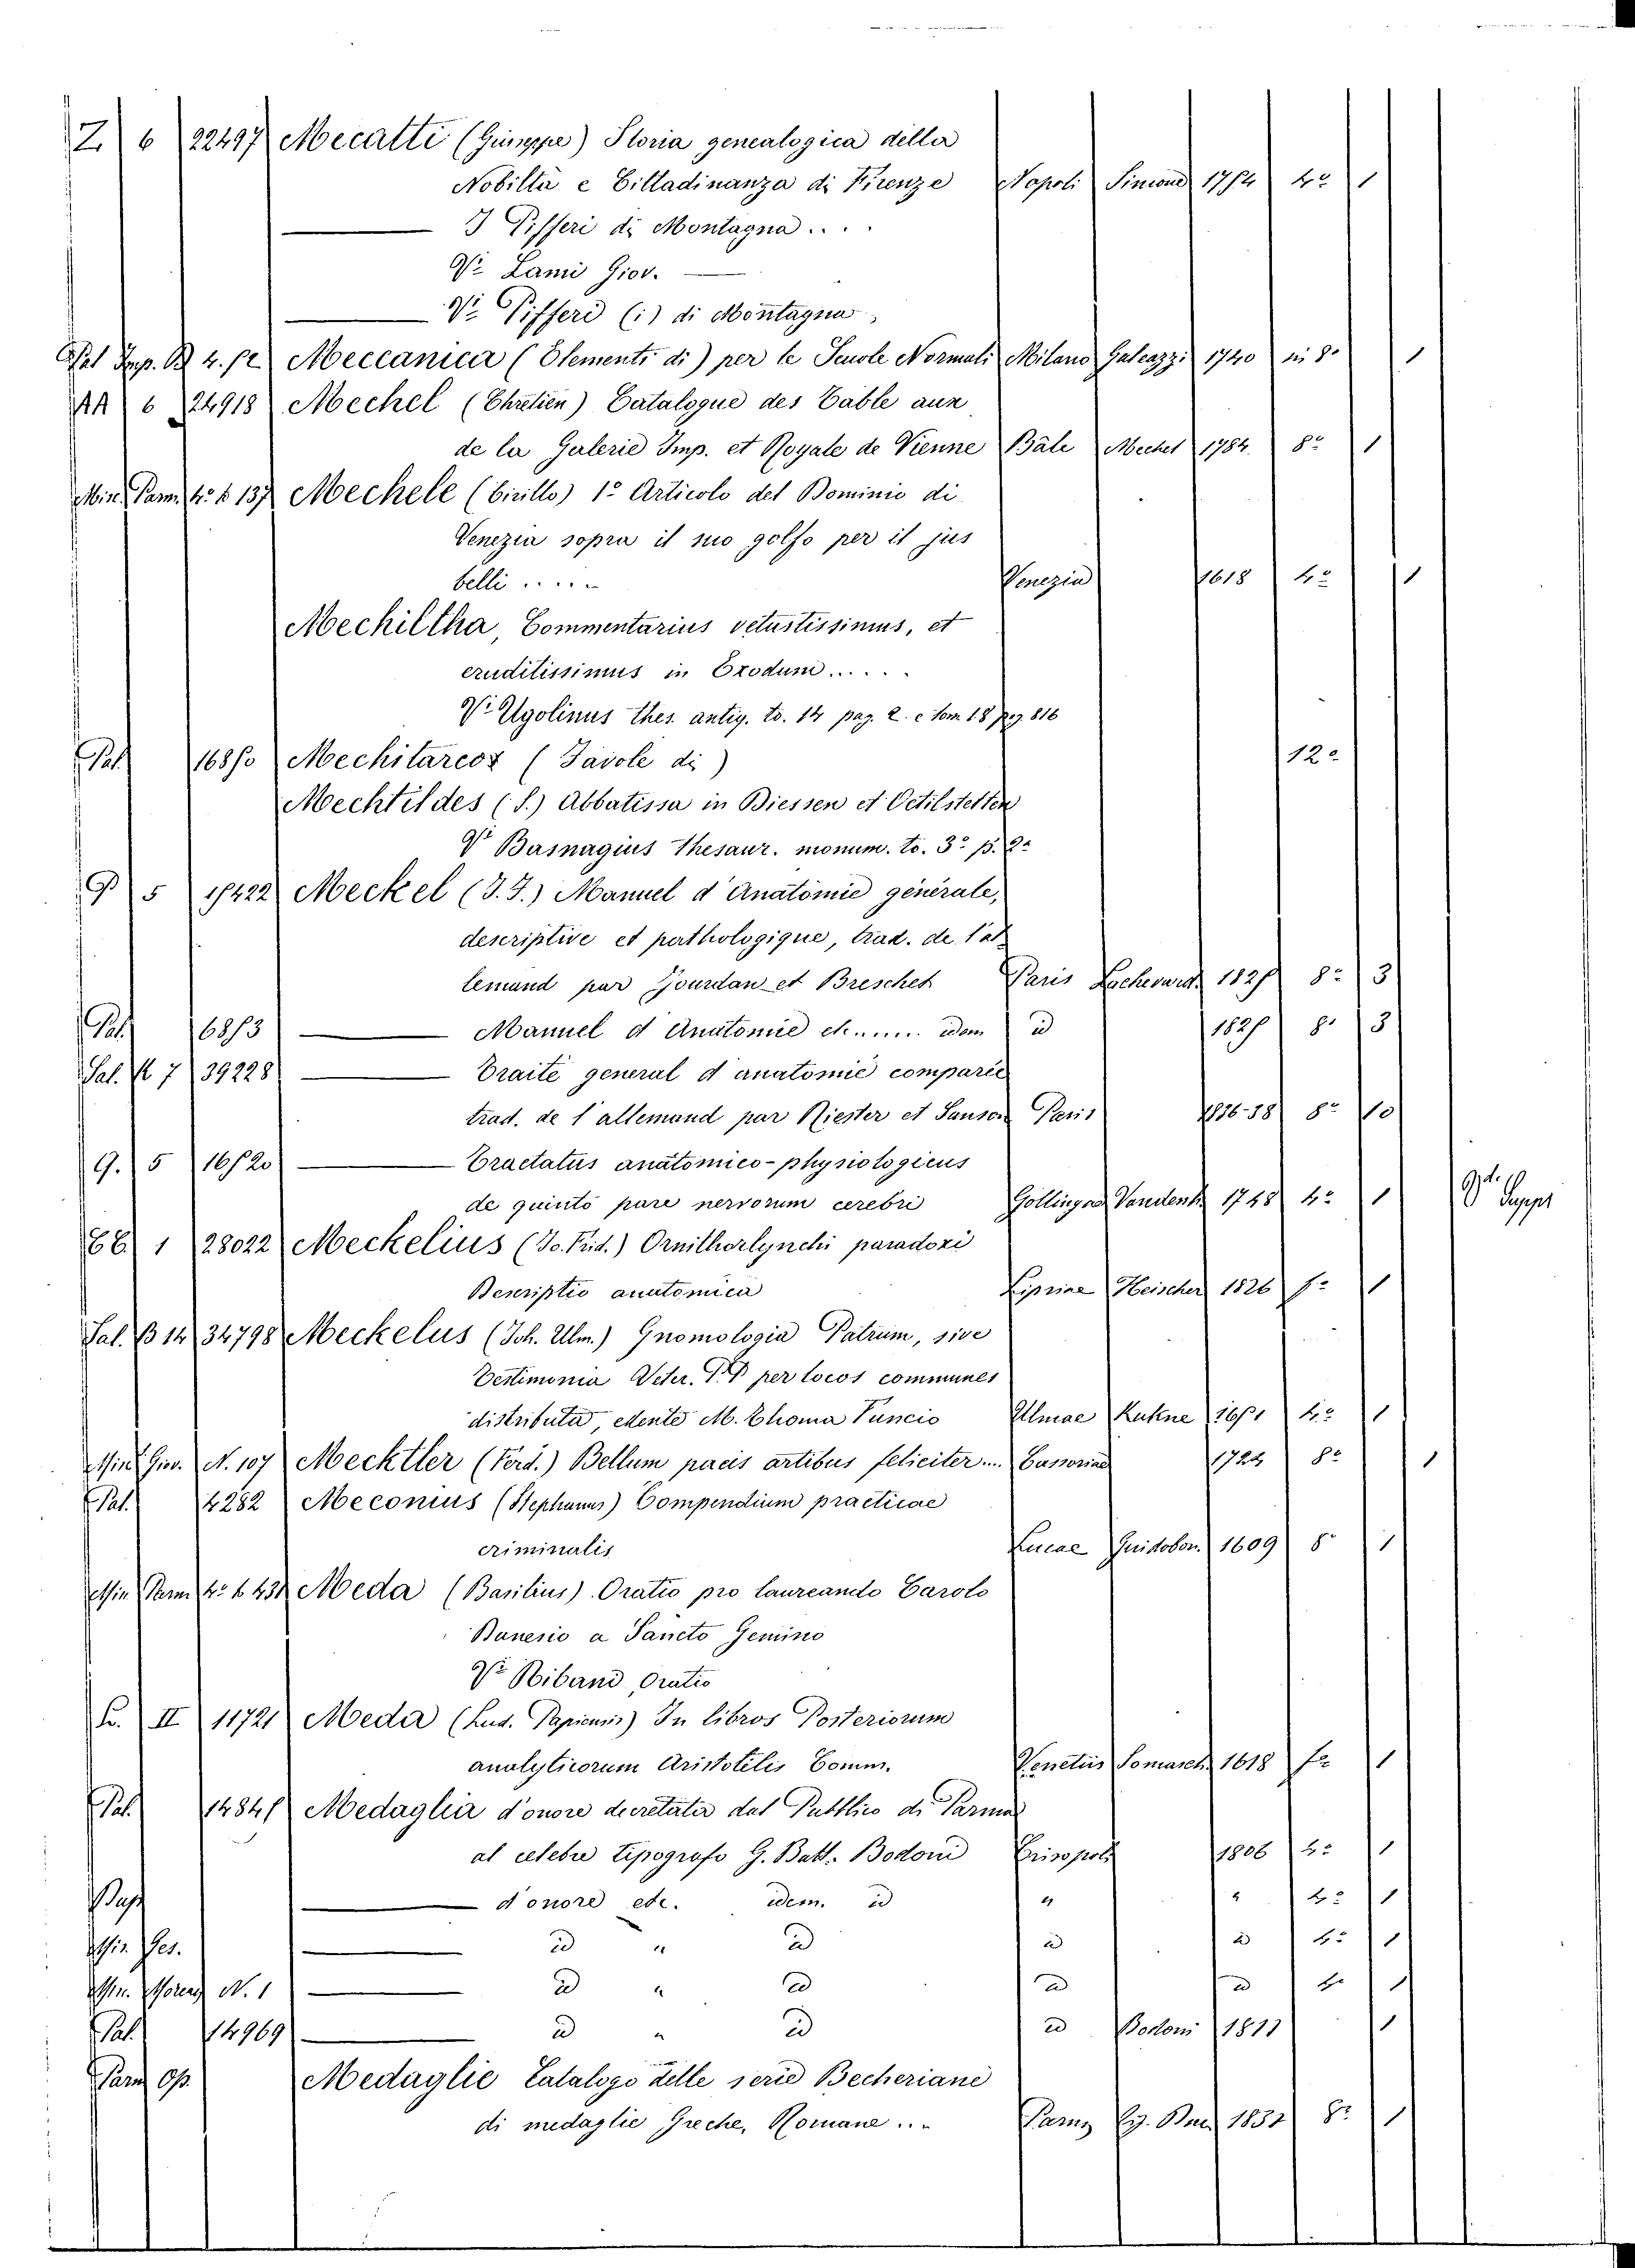 Z. 6 22497 Mecatti (Giuseppe) Storia genealogica della
Nobiltà e Cittadinanza di Firenze Napoli Simone 1754 4º 1
——— I Pifferi di Montagna....
Vi Lami Giov. ——
——— Vi Pifferi (i) di Montagna,
Pal Imp. B 4. Meccanica (Elementi di) per le Scuole Normali Milano Galeazzi in 8º 1
AA 6 24918 Mechel (Chrétien) Catalogue des Table aux
de la Galerie Imp. et Royale de Vienne Bâle Mechel 1784 8º 1
Min. Parm. 4º b 137 Mechele (Cirillo) 1º Articolo del Dominio di
Venezia sopra il suo golfo per il jus
belli ..... Venezia 1618 4º 1
Mechiltha, Commentarius vetustissimus, et
eruditissimus in Exodum.....
Vi Ugolinus thes. antiq. to. 14 pag. 2. e tom. 18 pag 816
Pal 16850 Mechitareos (Tavole di) 12º
Mechtildes (S.) Abbatissa in Diessen et Oetilstetten
Vi Basnagius thesaur. monum. to. 3º p. 2ª
P 5 15422 Meckel (J. F.) Manuel d'Anatomie générale,
descriptive et pathologique, trad. de l'al-
lemand par Jourdan et Breschet Paris 1825 8º 3
Pal. 16853 ——— Manuel d'Anatomie etc...... idem id 1825 8º 3
Sal. K 7 39228 ——— Traité general d'anatomie comparée
trad. de l'allemand par Riester et Sanson Paris 1836-38 8º 10
G. 5 16520 ——— Tractatus anatomico-physiologicus
de quinto pare nervorum cerebri Gottingae Vandenh. 1748 4º 1
Suppt
EE. 1 28022 Meckelius (Jo. Frid.) Ornithorlynchi paradoxi
Descriptio anatomica Lipsiae Fleischer 1826 fº 1
Sal. B 14 34798 Meckelus (Joh. Ulm.) Gnomologia Patrum, sive
Testimonia Veter. P.P per locos communes
distributa, edente M. Thoma Tuncio Ulmae Kuhne 1651 4º 1
Min Giov. N. 107 Mecktler (Ferd.) Bellum pacis artibus feliciter.... Cassoviae 1724 8º 1
Pal. 4282 Meconius (Stephanus) Compendium practicae
criminalis Lucae Guidobon. 1609 8º 1
Min Parm 4º b 431 Meda (Basilius) Oratio pro laureando Carolo
Banesio a Sancto Gemino
Vi Riband, Oratio
L. II 11721 Meda (Lud. Papiensis) In libros Posteriorum
analyticorum Aristotelis Comm. Venetiis Somasch. 1618 fº 1
Pal. 14845 Medaglia d'onore decretata dal Pubblico di Parma
al celebre tipografo G. Batt. Bodoni Crisopoli 1806 4º 1
——— d'onore etc. idem. id " " 4º 1
Min. Ges. ——— id " id id id 4º 1
Min. Moreng N. 1 ——— id " id id id 4º 1
Pal. 14969 ——— id " id id Bodoni 1811 1
Parm Op. Medaglie Catalogo delle serie Becheriane
di medaglie Greche, Romane... Parma 8º 1